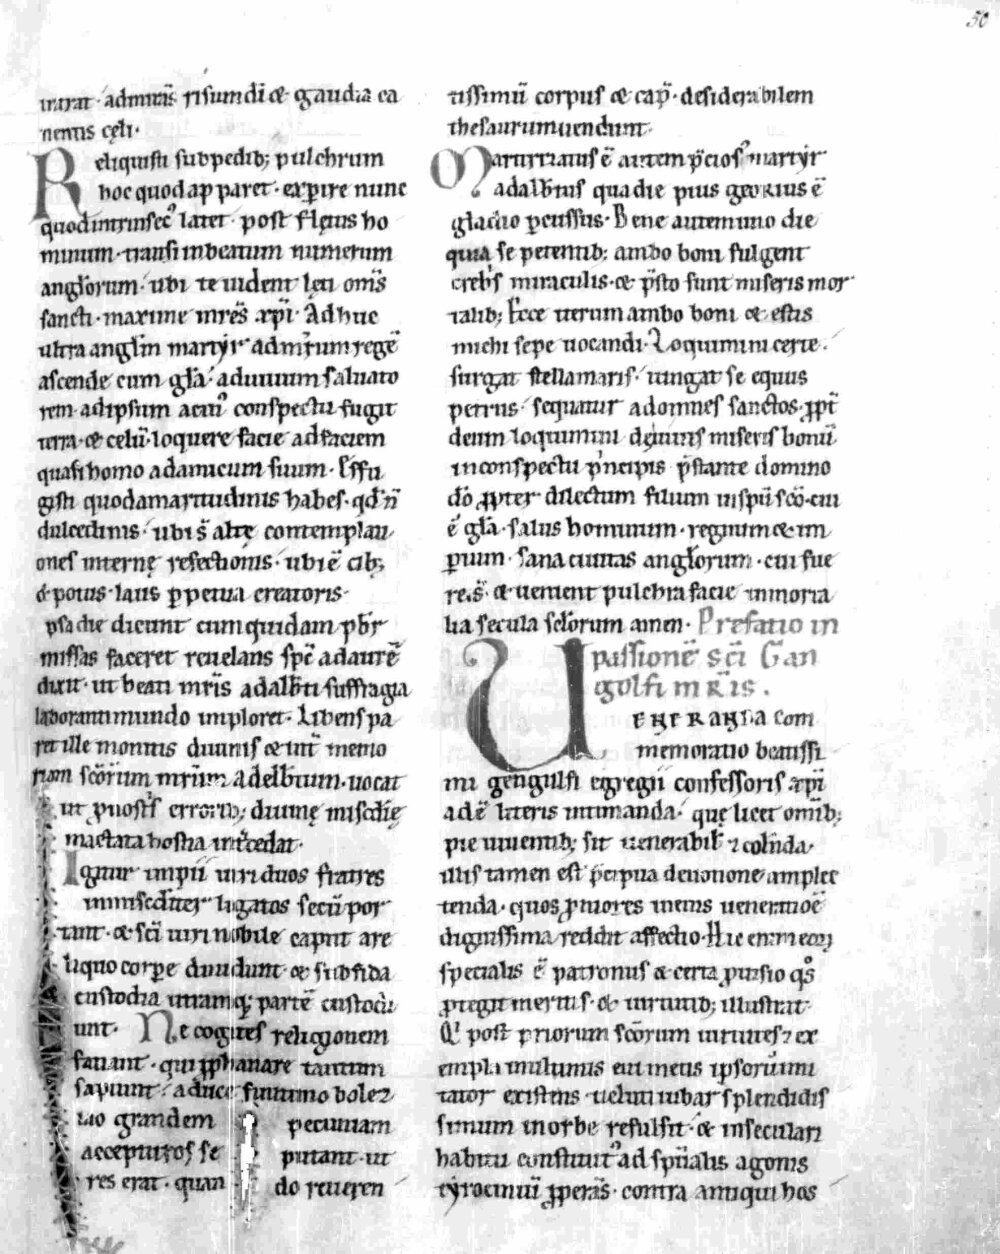 50
intrat · admirans risum di & gaudia ca
nentis cęli ·
Reliquisti sub pedib; pulchrum
hoc quod apparet · expire nunc
quod intrinsec latet · post filius ho
minum · transi in beatum numerum
anglorum · ubi te uident leti oms
sancti · maxime mres xpi · Adhuc
ultra anglm martyr ad mrum rege
ascende cum gla · ad uiuum saluato
rem · ad ipsum aciu conspectu fugit
terra · & celu · loquere facie ad faciem
quasi homo ad amicum suum · Effu
gisti quod amaritudinis habes · qd n
dulcedinis · ubi s altę contemplati
ones internę refectionis · ubi e cib;
& potus · laus ppetua creatoris ·
psa die dicunt cum quidam pbr
missas faceret reuelans spe ad aure
dixit · ut beati mris adalbti suffragia
laboranti mundo imploret · Libens pa
ret ille monitis diuinis & int memo
riam scorum mrum adelbtum uocat
ut p nostris erroribus; diuinę misdię
mactata hostia intcedat ·
Igitur impii uiri duos fratres
inmisediter ligatos secu por
tant · & sci uiri nobile caput are
liquo corpe diuidunt · & sub fida
custodia utramq; parte custodi
unt · Ne cogites religionem
fauant · qui pphanare tantum
sapiunt · a duce
tio grandem pecuniam
accepturos se putant · ut
res erat · quan do reueren
tissimu corpus & cap · desiderabilem
thesaurum uendunt ·
Marturizatus e autem pcios martyr
adalbtus qua die pius georius e
gladio pcussus · Bene autem uno die
quia se petentib; ambo boni fulgent
crebs miraculis · & psto sunt miseris mor
talib; Ecce uerum ambo boni & estis
michi sepe uocandi · Loquimini certe ·
surgat stella maris · iungat se equus
petrus · sequatur ad omnes sanctos · ppt
deum loquimini de nris miseris bonu
in conspectu pncipis pstante domino
do ppter dilectum filium in spu sco · cui
e gla · salus hominum · regnum & im
pium · sana ciuitas anglorum · cui fue
re s · & uenient pulchra facie in memoria
lia secula sclorum amen · Prefatio in
passione sci Gan
golfi mris .
UENERANDA com
memoratio beatissi
mi gengulfi egregii confessoris xpi
ade literis intimanda · quę licet omib;
pie uiuentib; sit uenerabil 7 colnda ·
illis tamen est ppetua deuotione amplec
tenda · quos priores intimis ueneratioe
dignissima reddit affectio · Hic enim eoru
specialis e patronus & certa puisio qos
ptegit meritis · & uirtutib; illustrat ·
Qi post priorum scorum uirtutes 7 ex
empla multimis eminens ipsorum imi
tator existens · uelut iubar splendidis
simum in orbe refulsit · & in seculari
habitu constitut ad spualis agonis
tyrociniu pperas · contra antiqui hos